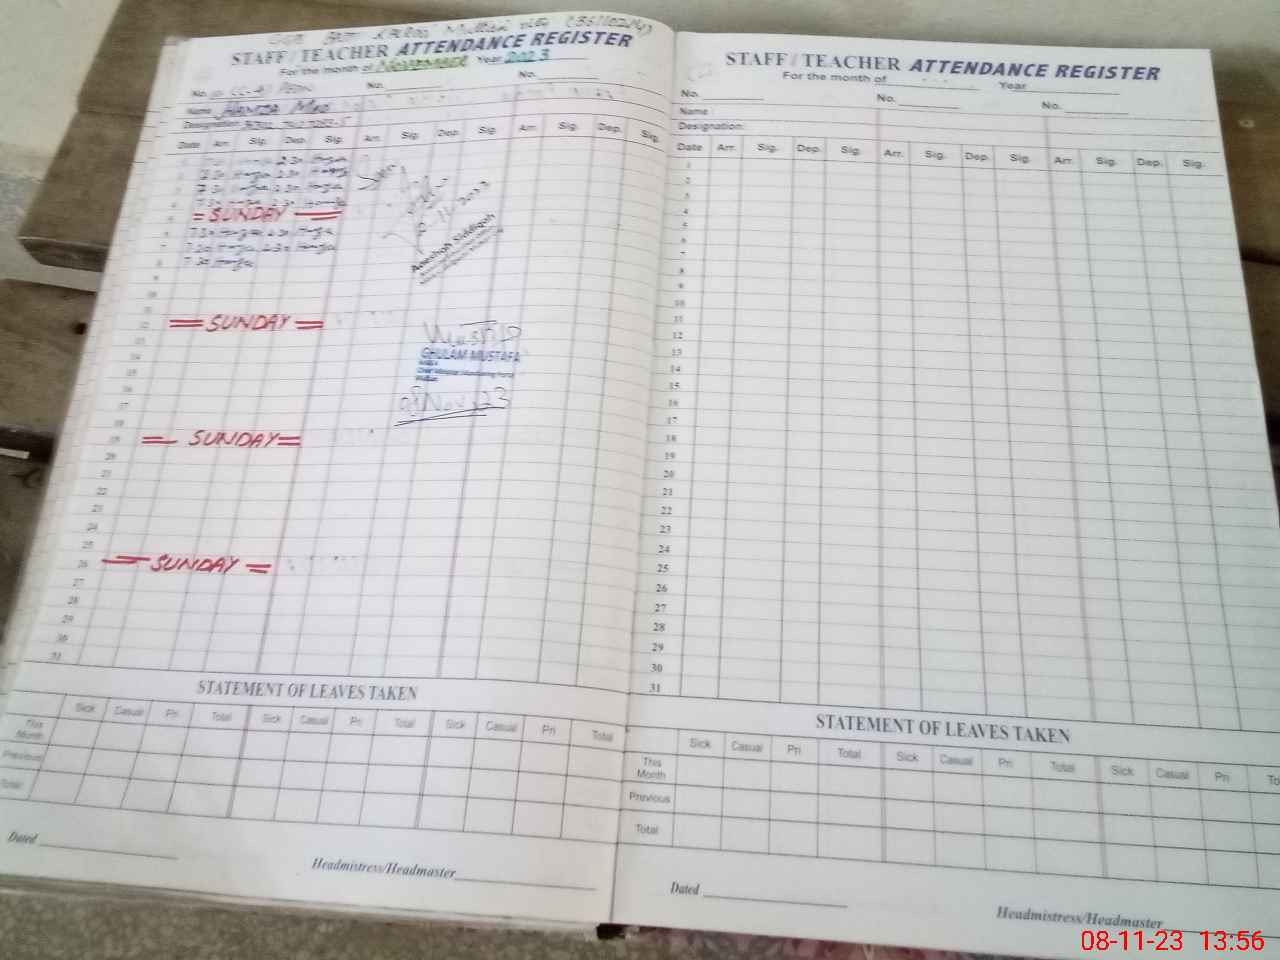 STAFF / TEACHER ATTENDANCE REGISTER
For the month of NOVEMBER Year 2023
No. No. No.
Name Hamza
Designation:
Date Arr. Sig. Dep. Sig. Arr. Sig. Dep. Sig. Arr. Sig. Dep. Sig.
2.30 Hamza
7.30 Hamza 2.30 Hamza
7.30 Hamza 2.30 Hamza
7.30 Hamza 2.30 Hamza
= SUNDAY =
6 7.30 Hamza 2.30 Hamza
7 7.30 Hamza 2.30 Hamza
8 7.30 Hamza
9
10
11
12 = SUNDAY =
13
14
15
16
17
18
19 = SUNDAY =
20
21
22
23
24
25
26 = SUNDAY =
27
28
29
30
31
-11-2023
Aneshah Siddiqah
GHULAM MUSTAFA
Chief Minister Monitoring Force
Multan
08 Nov, 23
STATEMENT OF LEAVES TAKEN
Sick Casual Pri Total Sick Casual Pri Total Sick Casual Pri Total
This Month
Previous
Total
Dated
Headmistress/Headmaster
STAFF / TEACHER ATTENDANCE REGISTER
For the month of Year
No. No. No.
Name
Designation:
Date Arr. Sig. Dep. Sig. Arr. Sig. Dep. Sig. Arr. Sig. Dep. Sig.
1
2
3
4
5
6
7
8
9
10
11
12
13
14
15
16
17
18
19
20
21
22
23
24
25
26
27
28
29
30
31
STATEMENT OF LEAVES TAKEN
Sick Casual Pri Total Sick Casual Pri Total Sick Casual Pri To
This Month
Previous
Total
Dated
Headmistress/Headmaster
08-11-23 13:56